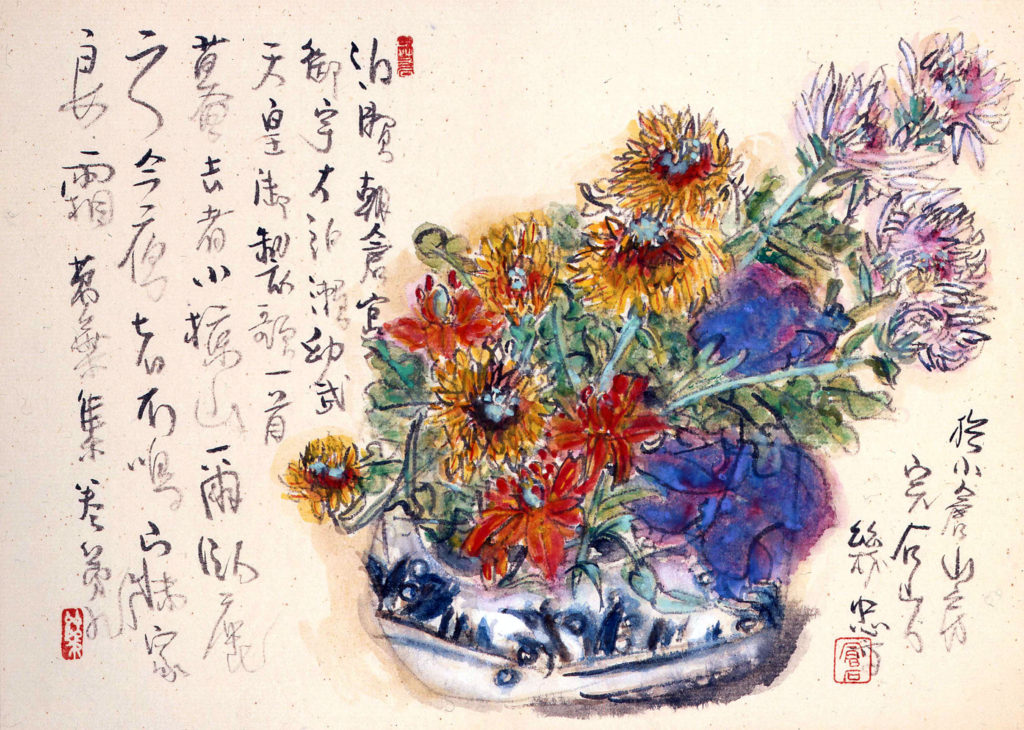 泊瀬朝倉宮
御宇大泊瀬幼武
天皇御製歌一首
暮去者小椋山爾臥鹿
之今夜者不鳴寐家
良霜 萬葉集巻第九
於小倉山房